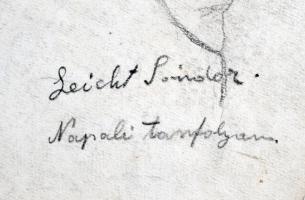 Leicht Sándor.
Nappali tanfolyam.